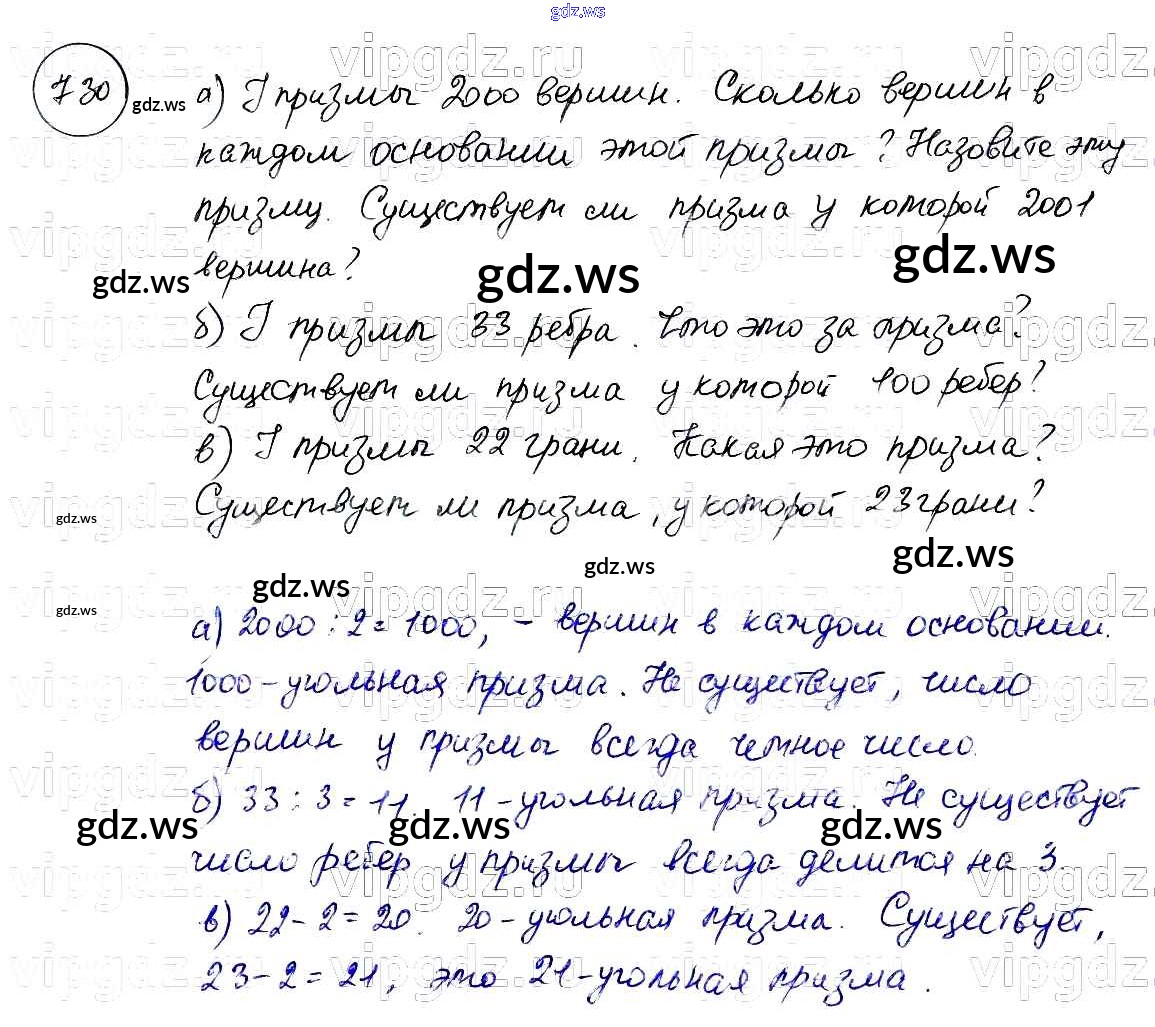 gdz.ws
730 gdz.ws а) У призмы 2000 вершин. Сколько вершин в
каждом основании этой призмы? Назовите эту
призму. Существует ли призма у которой 2001
вершина?
gdz.ws gdz.ws gdz.ws
б) У призмы 33 ребра. Что это за призма?
Существует ли призма у которой 100 ребер?
в) У призмы 22 грани. Какая это призма?
Существует ли призма, у которой 23 грани?
gdz.ws gdz.ws
gdz.ws gdz.ws
gdz.ws
а) 2000 : 2 = 1000, - вершин в каждом основании.
1000-угольная призма. Не существует, число
вершин у призмы всегда четное число.
б) 33 : 3 = 11. 11-угольная призма. Не существует
gdz.ws gdz.ws gdz.ws
число ребер у призмы всегда делится на 3.
в) 22 - 2 = 20. 20-угольная призма. Существует,
23 - 2 = 21, это 21-угольная призма.
vipgdz.ru